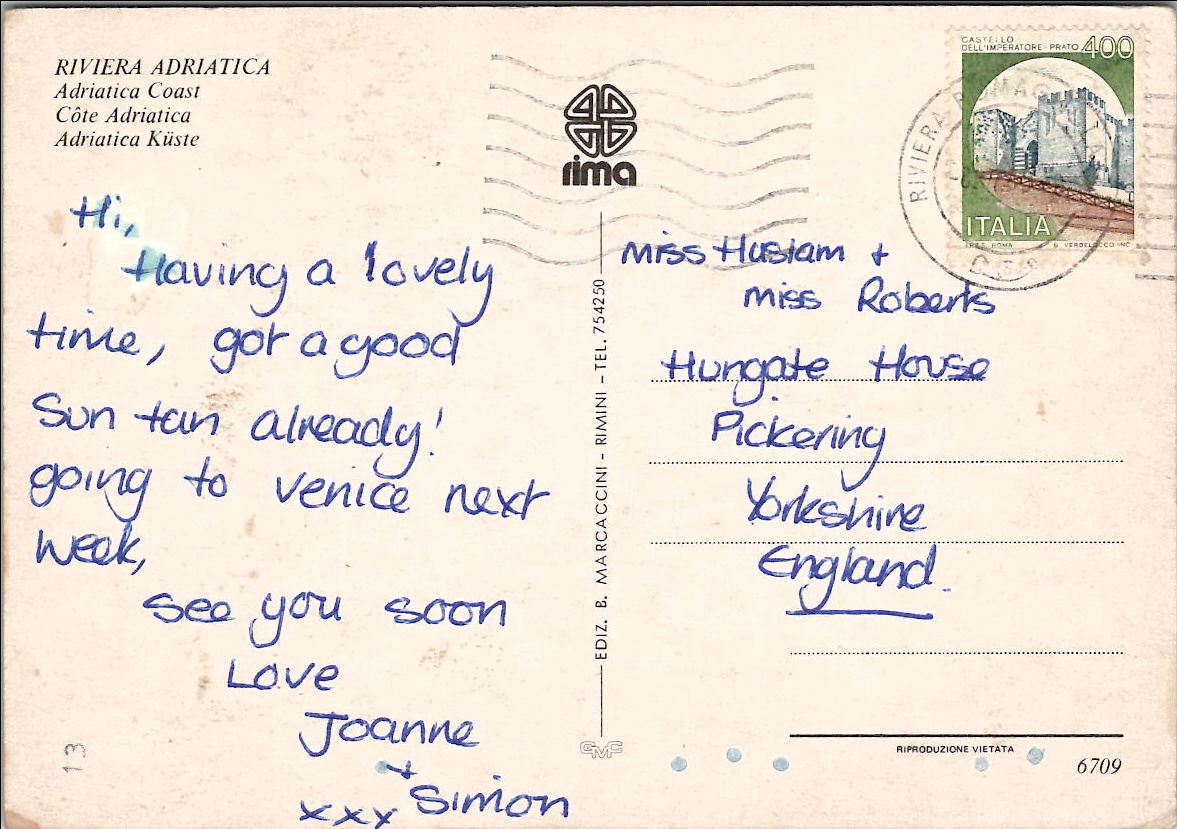 RIVIERA ADRIATICA
Adriatica Coast
Côte Adriatica
Adriatica Küste
rima
CASTELLO
DELL'IMPERATORE - PRATO 400
ITALIA
I.P.Z.S. ROMA
RIVIERA ROMAGNOLA
Hi,
Having a lovely
time, got a good
Sun tan already!
going to venice next
week,
See you soon
Love
Joanne
+
xxx Simon
EDIZ. B. MARCACCINI - RIMINI - TEL. 754250
GMC
Miss Huslam +
miss Roberts
Hungate House
Pickering
Yorkshire
England.
RIPRODUZIONE VIETATA
6709
13